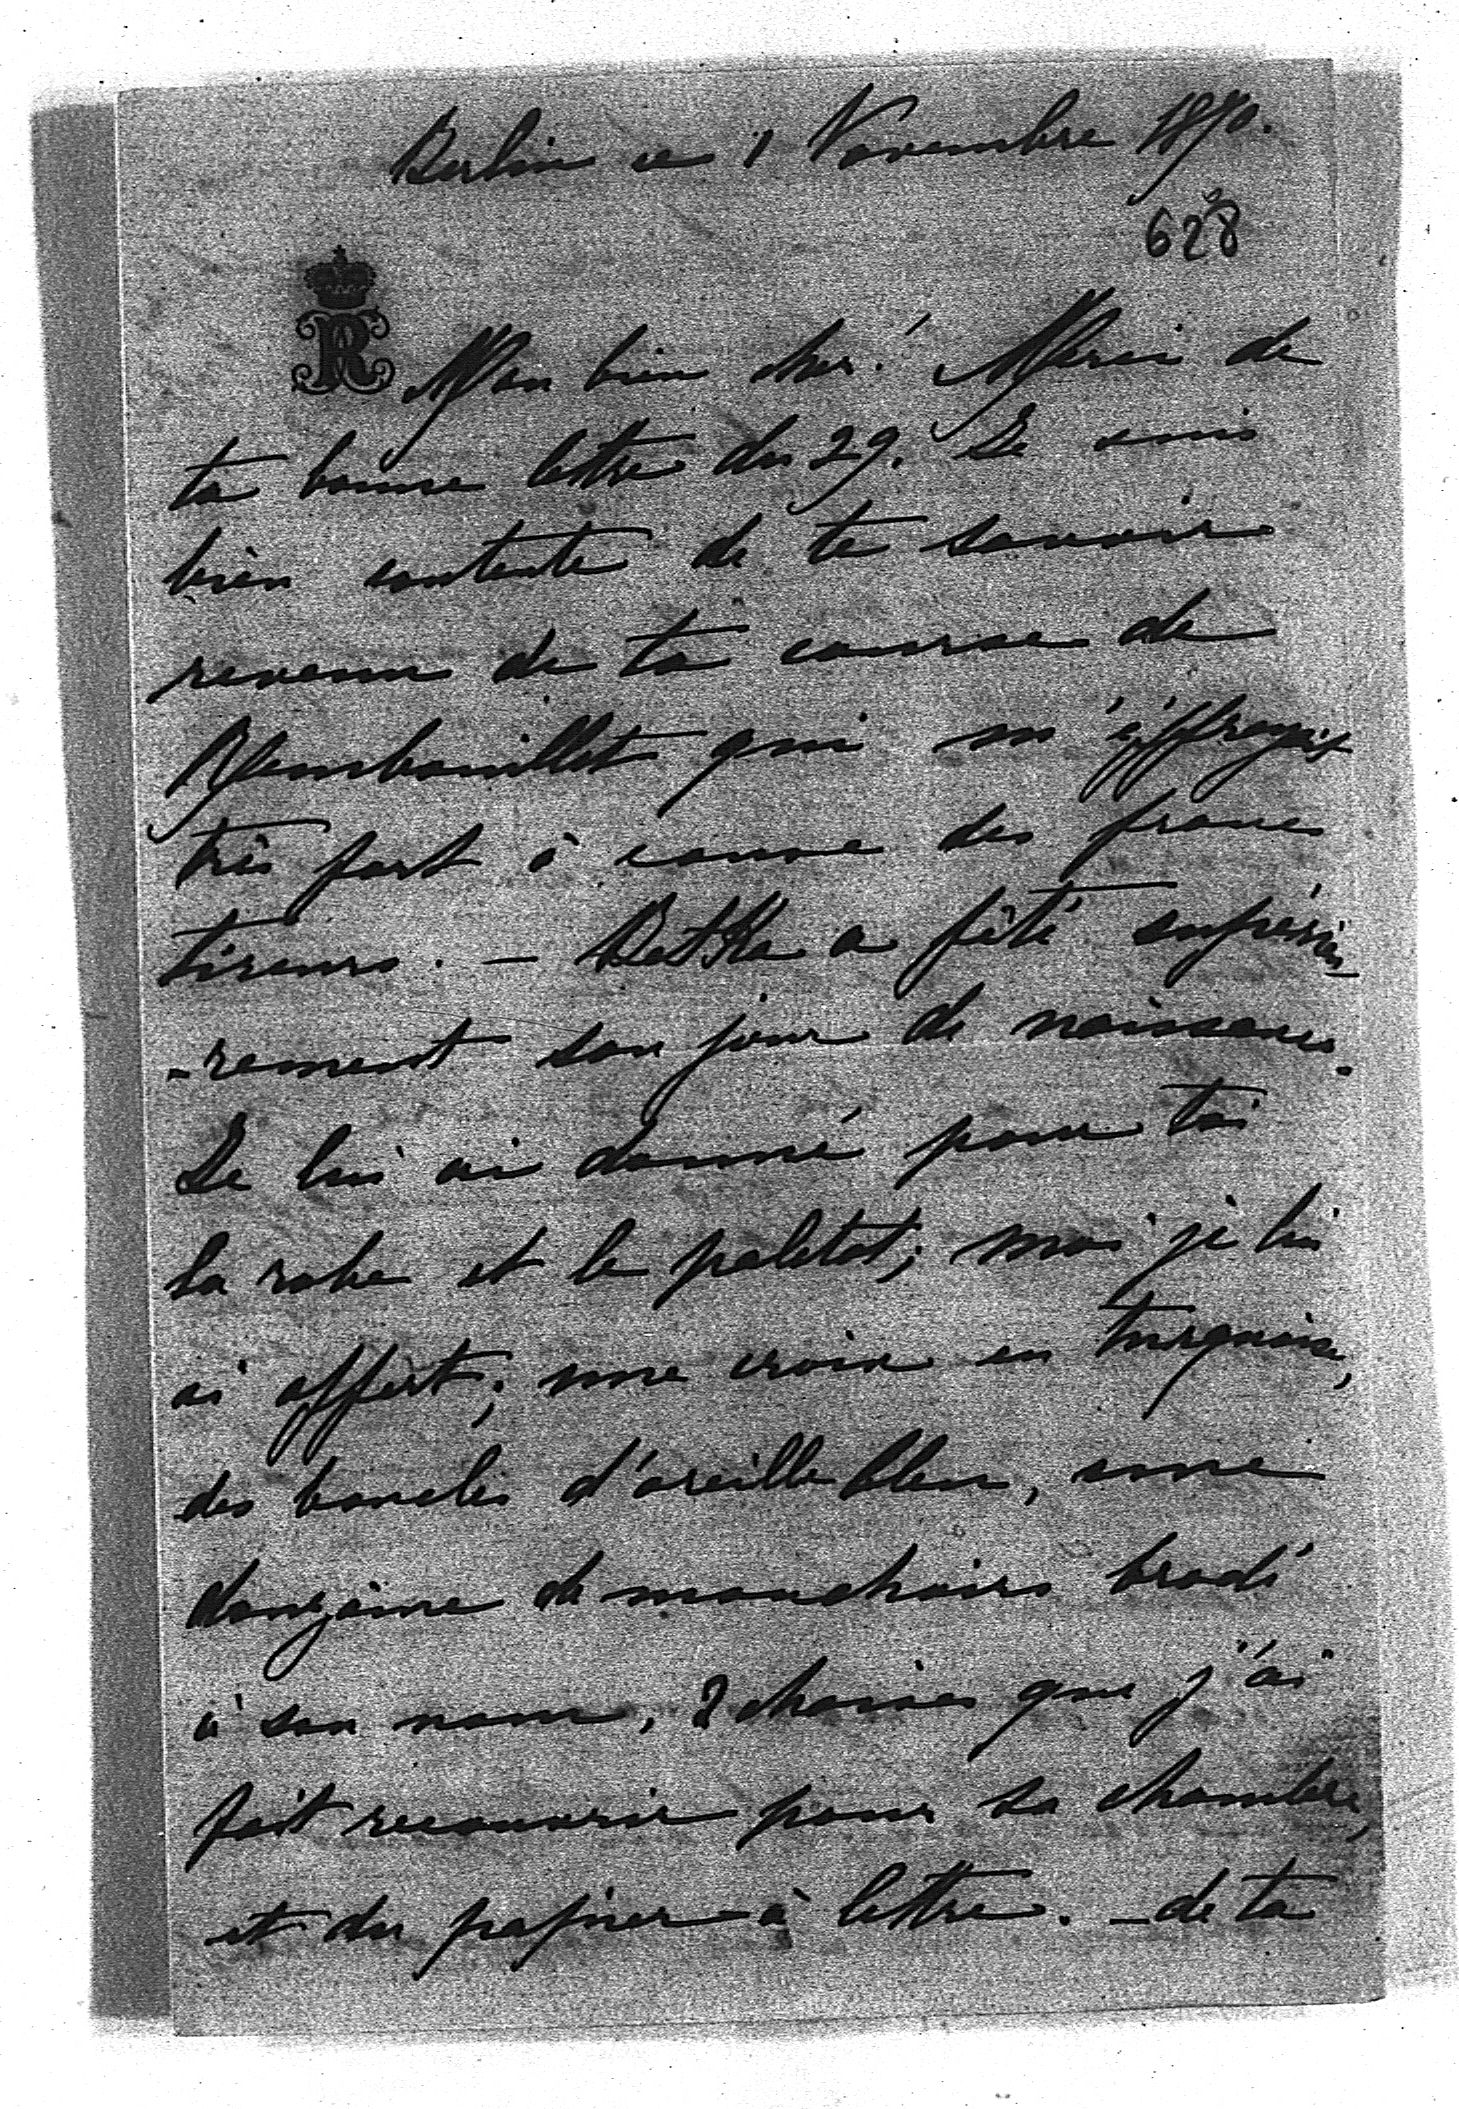 Berlin ce 1 Novembre 1870.
628
R
Mon bien cher! Merci de
ta bonne lettre du 29. Je suis
bien contente de te savoir
revenu de ta course de
Rambouillet qui m'éffrayait
très fort à cause des francs
tireurs. — Betka a fêté supérieu-
-rement son jour de naissance.
Je lui ai donné pour toi
la robe et le paletot; moi je lui
ai offert; une croix en turquoise,
des boucles d'oreille bleu, une
douzaine de mouchoirs brodé
à son nom, 2 chaises que j'ai
fait recouvrir pour sa chambre,
et du papier à lettre. — de ta